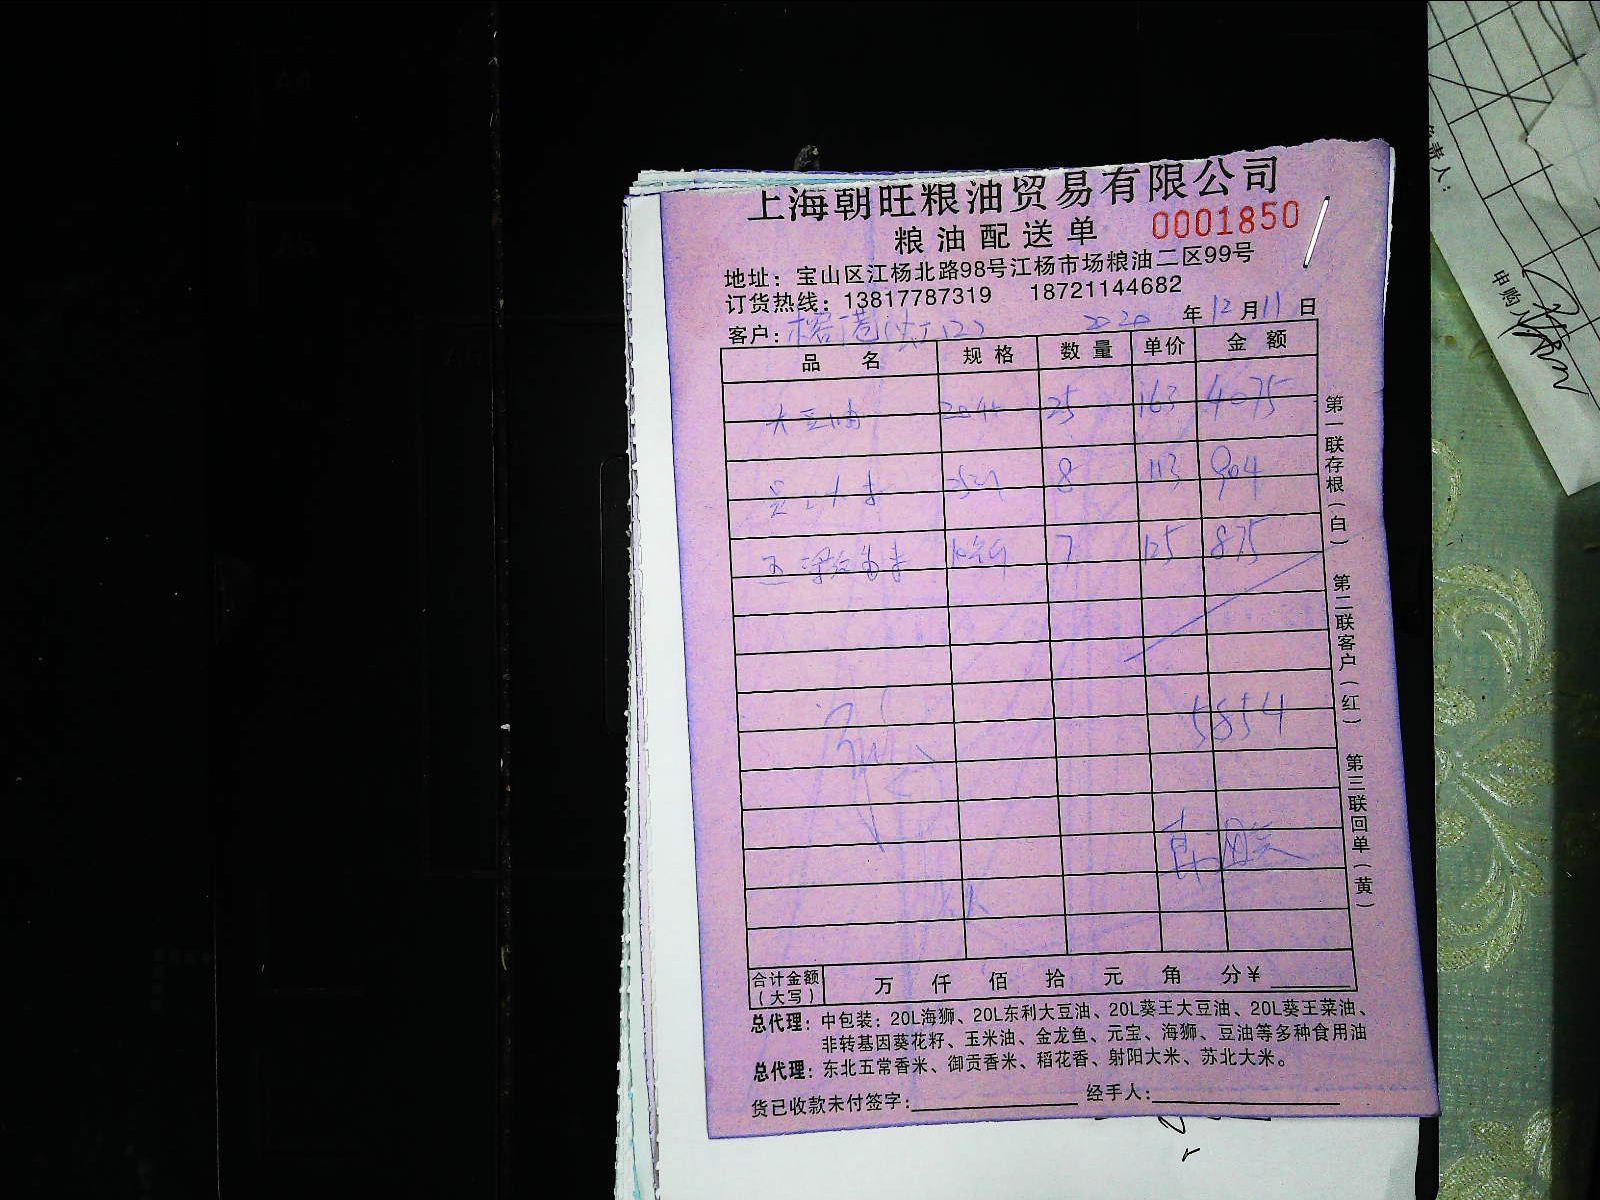 上海朝旺粮油贸易有限公司
粮油配送单 0001850
地址：宝山区江杨北路98号江杨市场粮油二区99号
订货热线：13817787319 18721144682
客户： 2020 年 12 月 11 日
品 名 规 格 数 量 单价 金 额
大豆油 25 163 4075
大米 8 113 904
7 125 875
5854
合计金额（大写） 万 仟 佰 拾 元 角 分￥
总代理：中包装：20L海狮、20L东利大豆油、20L葵王大豆油、20L葵王菜油、
非转基因葵花籽、玉米油、金龙鱼、元宝、海狮、豆油等多种食用油
总代理：东北五常香米、御贡香米、稻花香、射阳大米、苏北大米。
货已收款未付签字： 经手人：
第一联存根（白） 第二联客户（红） 第三联回单（黄）